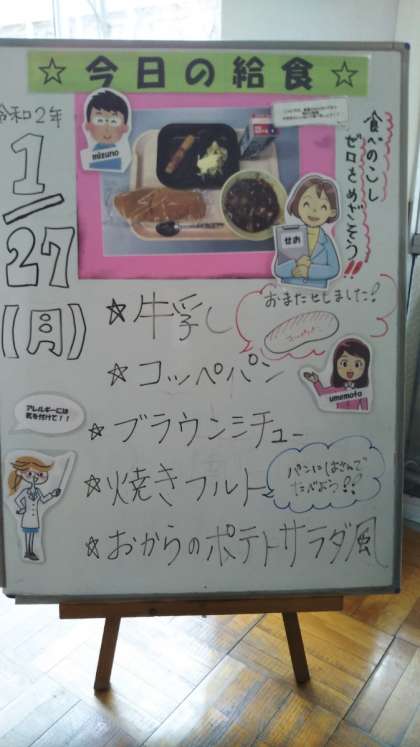 ☆今日の給食☆
令和2年
1/27
(月)
mizuno
せお
食べのこし
ゼロをめざそう!!
☆牛乳
おまたせしました!
☆コッペパン
umemoto
アレルギーには
気を付けて!!
☆ブラウンシチュー
☆焼きフルト
パンにはさんで
たべよう!!
☆おからのポテトサラダ風